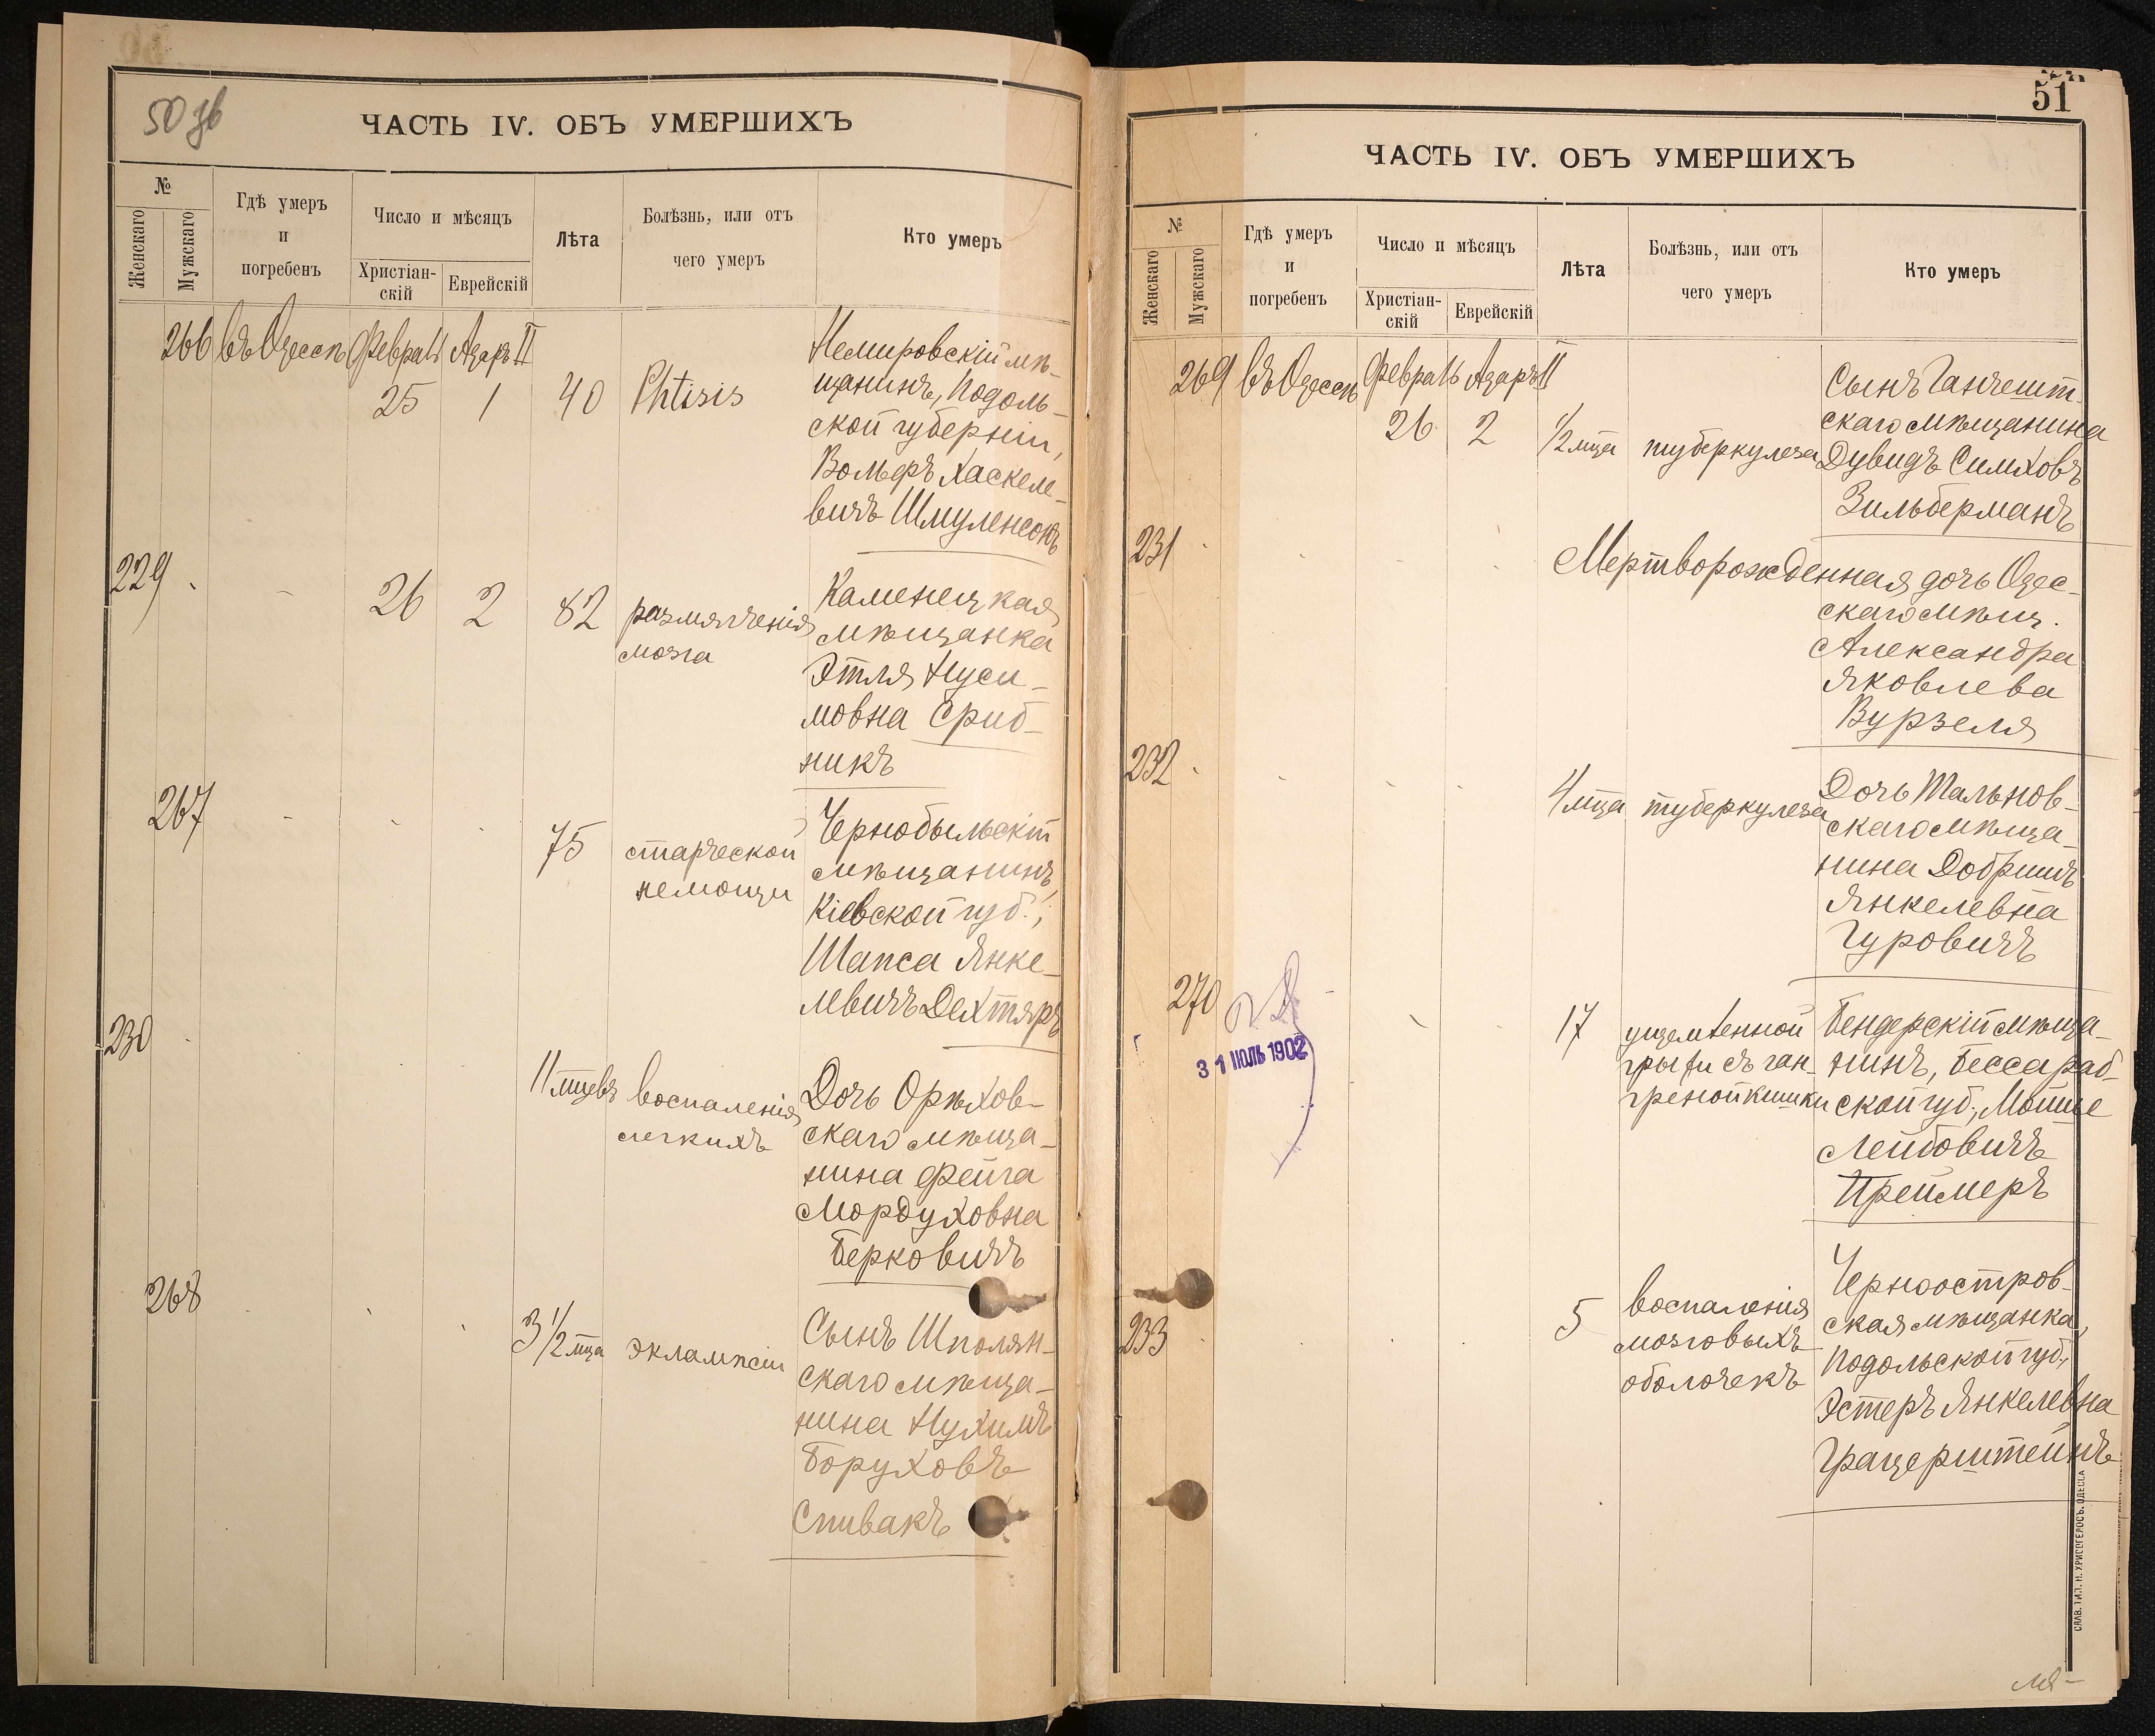 50 зв
ЧАСТЬ IV. ОБЪ УМЕРШИХЪ
№
Женскаго
Мужскаго
Гдѣ умеръ
и
погребенъ
Число и мѣсяцъ
Христіан-
скій
Еврейскій
Лѣта
Болѣзнь, или отъ
чего умеръ
Кто умеръ
266 въ Одессѣ Февраль Адаръ II
25 1 40 Phtisis
Немировскій мѣ-
щанинъ, Подоль-
ской губерніи,
Вольфъ Хаскеле-
вичъ Шмуленсонъ
229 26 2 82 размягченія
мозга
Каменецкая
мѣщанка
Этля Нуси-
мовна Сриб-
никъ
267 75 старческой
немощи
Чернобыльскій
мѣщанинъ,
Кіевской губ.,
Шапса Янке-
левичъ Дехтяръ
230 11 мцевъ воспаленія
легкихъ
Дочь Орѣхов-
скаго мѣща-
нина Фейга
Мордуховна
Берковичъ
268 3 1/2 мца эклампсіи
Сынъ Шполян-
скаго мѣща-
нина Нухимъ
Боруховъ
Спивакъ
51
ЧАСТЬ IV. ОБЪ УМЕРШИХЪ
№
Женскаго
Мужскаго
Гдѣ умеръ
и
погребенъ
Число и мѣсяцъ
Христіан-
скій
Еврейскій
Лѣта
Болѣзнь, или отъ
чего умеръ
Кто умеръ
269 въ Одессѣ Февраль Адаръ II
26 2 1/2 мца туберкулеза
Сынъ Ганчешт-
скаго мѣщанина
Дувидъ Симховъ
Зильберманъ
231 Мертворожденная дочь Одес-
скаго мѣщ.
Александра
Яковлева
Вурзеля
232 4 мца туберкулеза
Дочь Тальнов-
скаго мѣща-
нина Добришъ
Янкелевна
Гуровичъ
270 17 ущемленной
грыжи съ ган-
греной кишки
Бендерскій мѣща-
нинъ, Бессараб-
ской губ., Мойше
Лейбовичъ
Креймеръ
31 ІЮЛЬ 1902
233 5 воспаленія
мозговыхъ
оболочекъ
Черноостров-
ская мѣщанка,
Подольской губ.,
Эстеръ Янкелевна
Грацерштейнъ
СЛАВ. ТИП. Н. ХРИСОГЕЛОСЪ. ОДЕССА